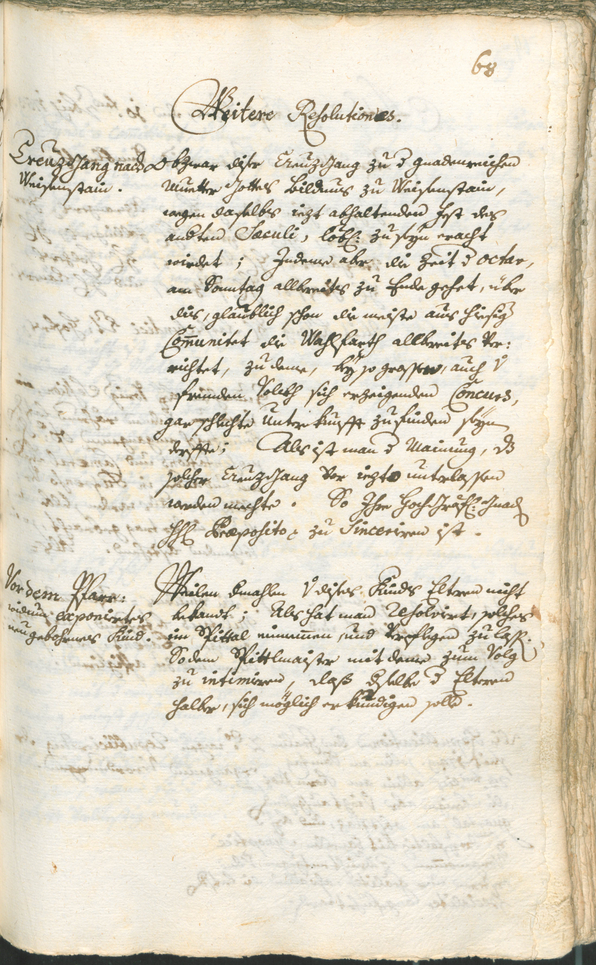 68
Weitere Resolutiones.
Creuzgang nach
Weisenstain.
Obzwar diser Creuzgang zu d gnadenreichen
Muetter Gottes Bildnus zu Weisenstain,
wegen daselbs iezt abhaltenden fest des
andten Sæculi, löbl: zu seyn eracht
wirdet; Indeme aber die Zeit d octav,
am Sontag allbereits zu Ende gehet, über
dis, glaublich schon die meiste aus hiesig
Comunitet die Wahlfarth allbereits ver:
richtet, zu deme, bey so grossen, auch v
frembden Volckh sich erzeigenden Concurs,
gar schlechte Unterkunfft zu finden seyn
derffte; Als ist man d Mainung, dz
solcher Creuzgang vor iezto unterlassen
werden mechte. So Ihro Hochgräfl: Gnad
Præposito zu Sinceriren ist.
Vor dem Pfarr:
widum exponirtes
neugebohrnes Kind.
Weilen dmahlen v dises Kinds Eltern nicht
bekandt; Als hat man resolvirt, solches
im Spittal einnemen, und verpflegen zu lass:
So dem Spittlmaister mit deme zum Volg
zu intimiren, dass dselbe d Eltern
halber, sich möglich erkundigen solle.